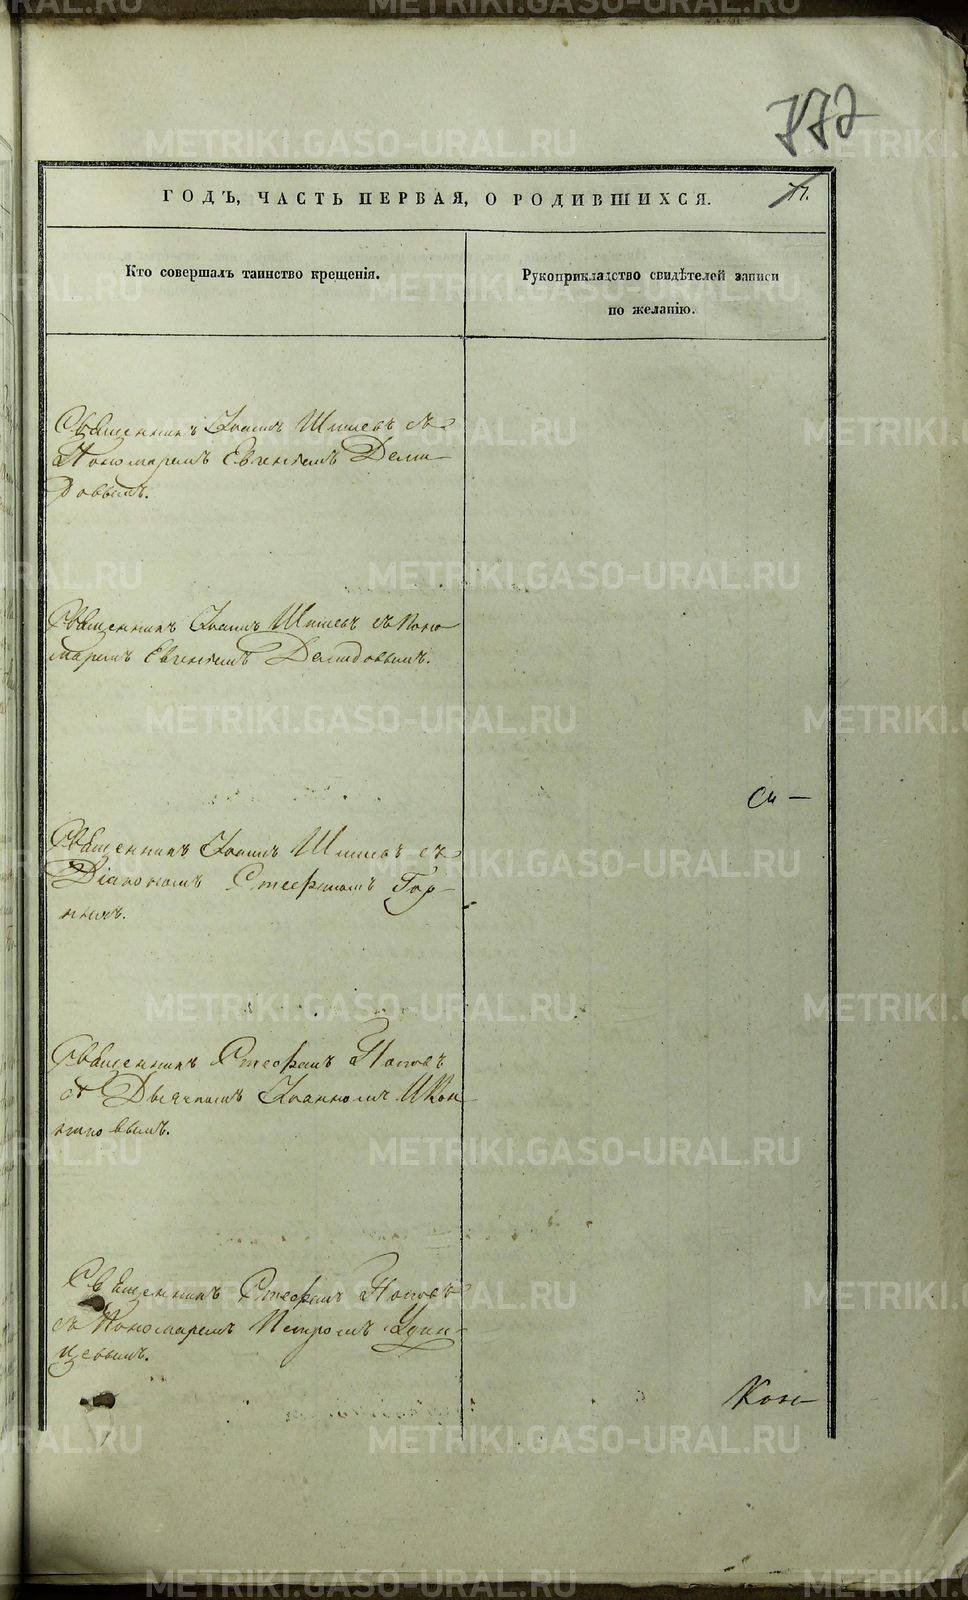 772
ГОДЪ, ЧАСТЬ ПЕРВАЯ, О РОДИВШИХСЯ.
Кто совершалъ таинство крещенія.
Рукоприкладство свидѣтелей записи
по желанію.
Священникъ Іоаннъ Шишевъ съ
Пономаремъ Евгеніемъ Деми-
довымъ.
Священникъ Іоаннъ Шишевъ съ Поно
маремъ Евгеніемъ Демидовымъ.
Священникъ Іоаннъ Шишевъ съ
Діакономъ Стефаномъ Гор-
нымъ.
Священникъ Стефанъ Поповъ
съ Дьячкомъ Іоанномъ Икон
никовымъ.
Священникъ Стефанъ Поповъ
съ Пономаремъ Петромъ Удин-
цевымъ.
METRIKI.GASO-URAL.RU